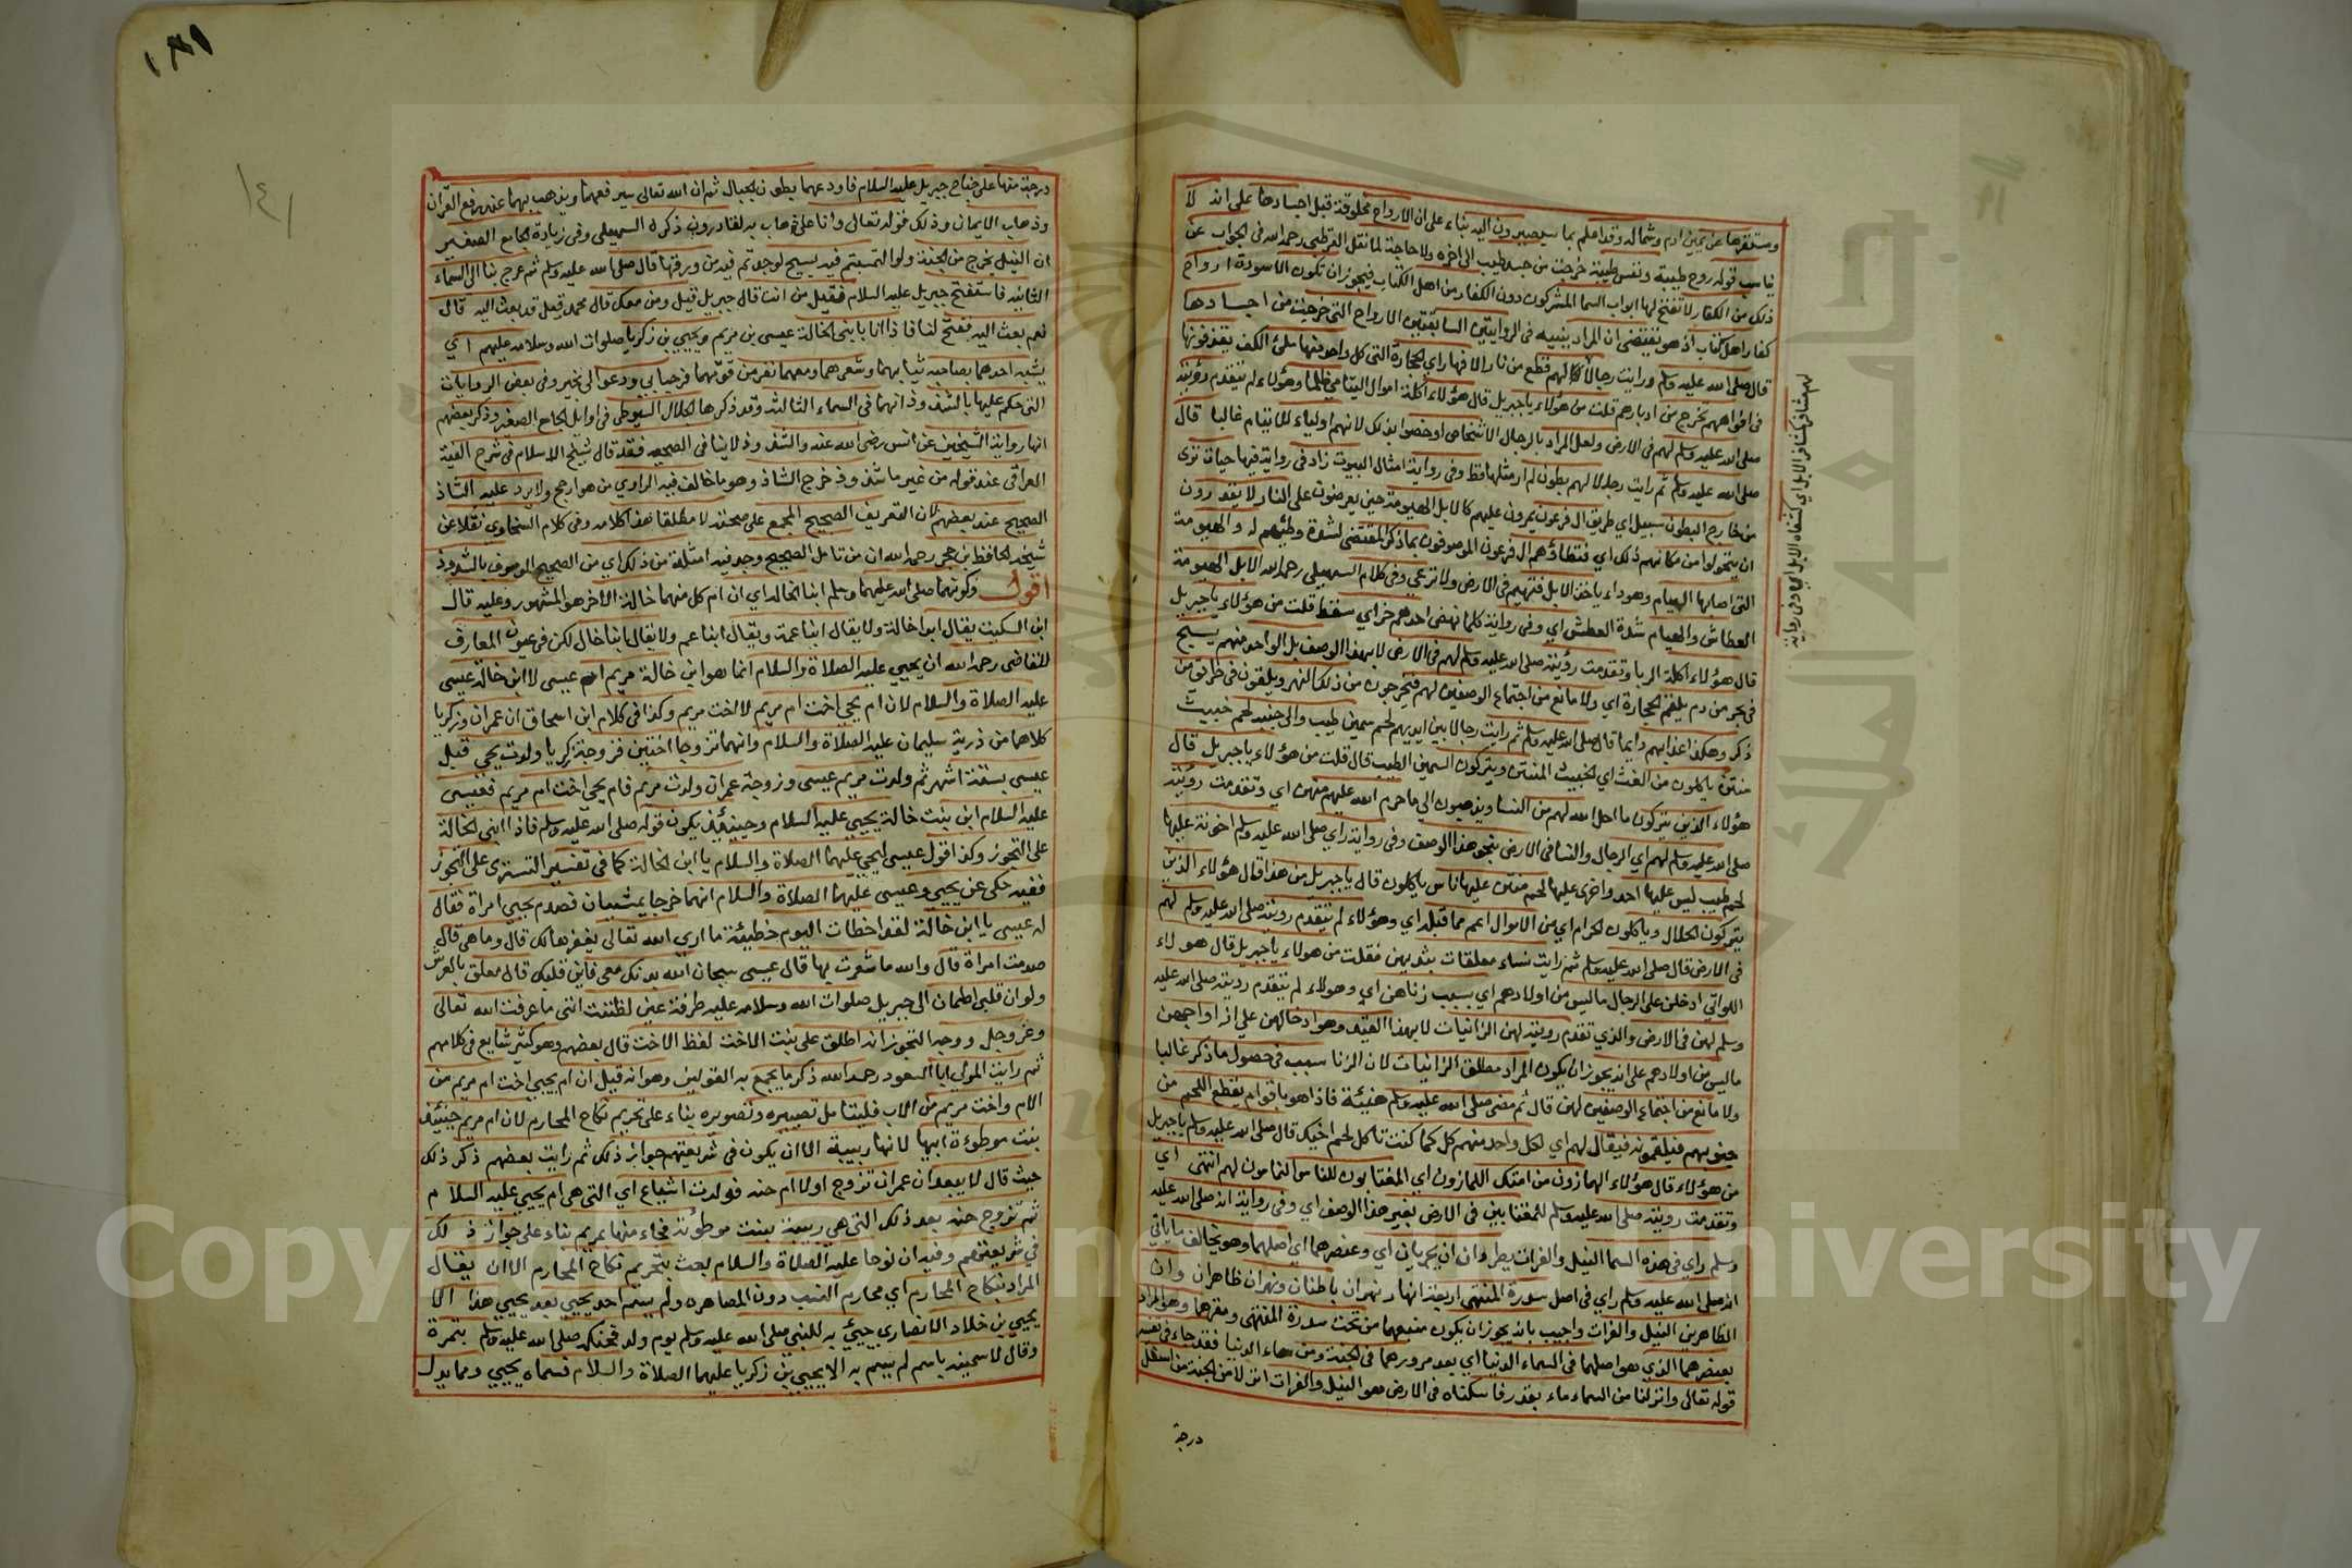 ومستقرها عن يمين ادم وشماله وقد اعلم بما سيصيرون اليه بناء على ان الارواح مخلوقة قبل اجسادها على انه لا
يناسب قوله روح طيبة ونفس طيبة خرجت من جسد طيب الى اخره ولا حاجة لما نقل القرطبي رحمه الله في الجواب عن
ذلك من الكفار لا تفتح لها ابواب السما المشركون دون الكفار من اهل الكتاب فيجوز ان تكون الاسودة ارواح
كفار اهل الكتاب اذ هو يقتضي ان المراد ببنيه في الروايتين السابقتين الارواح التي خرجت من اجسادها
قال صلى الله عليه وسلم ورايت رجالا لهم قطع من نار الافهار اي الحجارة التي كل واحد منها ملئ الكف يقذفونها
في افواههم تخرج من ادبارهم قلت من هؤلاء يا جبريل قال هؤلاء اكلة اموال اليتامى ظلما وهؤلاء لم يتقدم رؤيته
صلى الله عليه وسلم لهم في الارض ولعل المراد بالرجال الاشخاص او خصوا بذلك لانهم اولياء للايتام غالبا قال
صلى الله عليه وسلم ثم رايت رجلا لهم بطون لم ار مثلها قط وفي رواية امثال البيوت زاد في رواية فيها حيات ترى
من خارج البطون سبيل اي طريق ال فرعون يمرون عليهم كالابل المهيومة حين يعرضون على النار لا يقدرون
ان يتحولوا من مكانهم ذلك اي فتطاؤهم ال فرعون الموصوفون بما ذكر المقتضى لشدة وطئهم له والمهيومة
التي اصابها الهيام وهو داء ياخذ الابل فتهيم في الارض ولا ترعى وفي كلام السهيلي رحمه الله الابل المهيومة
العطاش والهيام شدة العطش اي وفي رواية كلما نهض احدهم خر اي سقط قلت من هؤلاء يا جبريل
قال هؤلاء اكلة الربا وتقدمت رؤيته صلى الله عليه وسلم لهم في الارض لا بهذا الوصف بل الواحد منهم يسبح
في بحر من دم يلقم الحجارة اي ولا مانع من اجتماع الوصفين لهم فيخرجون من ذلك النهر ويلقون في طريق من
ذكر وهكذا عذابهم دايما قال صلى الله عليه وسلم ثم رايت رجالا بين ايديهم لحم سمين طيب والى جنبه لحم خبيث
منتن ياكلون من الغث اي الخبيث المنتن ويتركون السمين الطيب قال قلت من هؤلاء يا جبريل قال
هؤلاء الذين يتركون ما احل الله لهم من النسا ويذهبون الى ما حرم الله عليهم منهن اي وتقدمت رؤيته
صلى الله عليه وسلم لهم اي الرجال والنسا في الارض بنحو هذا الوصف وفي رواية راي صلى الله عليه وسلم اخونة عليها
لحم طيب ليس عليها احد واخرى عليها لحم منتن عليها ناس ياكلون قال يا جبريل من هذا قال هؤلاء الذين
يتركون الحلال وياكلون الحرام اي من الاموال اعم مما قبله اي وهؤلاء لم يتقدم رويته صلى الله عليه وسلم لهم
في الارض قال صلى الله عليه وسلم ثم رايت نساء معلقات بثديهن فقلت من هولاء يا جبريل قال هولاء
اللواتي ادخلن على الرجال ما ليس من اولادهم اي بسبب زناهن اي وهولاء لم يتقدم رويته صلى الله عليه
وسلم لهن في الارض والذي تقدم رويته لهن الزانيات لا بهذا القيد وهو ادخالهن على ازواجهن
ما ليس من اولادهم على انه يجوز ان يكون المراد مطلق الزانيات لان الزنا سبب في حصول ما ذكر غالبا
ولا مانع من اجتماع الوصفين لهن قال ثم مضى صلى الله عليه وسلم هنيئة فاذا هو باقوام يقطع اللحم من
جنوبهم فيلقمونه فيقال لهم اي لكل واحد منهم كل كما كنت تاكل لحم اخيك قال صلى الله عليه وسلم يا جبريل
من هؤلاء قال هؤلاء الهمازون من امتك اللمازون اي المغتابون للناس النمامون لهم انتهى اي
وتقدمت رويته صلى الله عليه وسلم للمغتابين في الارض بغير هذا الوصف اي وفي رواية انه صلى الله عليه
وسلم راي في هذه السما النيل والفرات يطردان اي يجريان اي وعنصرهما اي اصلهما وهو يخالف ما ياتي
انه صلى الله عليه وسلم راي في اصل سدرة المنتهى اربعة انهار نهران باطنان ونهران ظاهران وان
الظاهرين النيل والفرات واجيب بانه يجوز ان يكون منبعهما من تحت سدرة المنتهى ومقرهما وهو المراد
بعنصرهما الذي هو اصلهما في السماء الدنيا اي بعد مرورهما في الجنة ومن سماء الدنيا فقد جاء في تفسير
قوله تعالى وانزلنا من السماء ماء بقدر فاسكناه في الارض هو النيل والفرات انزلا من الجنة من اسفل
درجة
لهم مشافر كمشافر الابل اي كشفاه الابل اي وفي رواية
١٤١
درجة منها على جناح جبريل عليه السلام فاودعهما بطون الجبال ثم ان الله تعالى سيرفعهما ويذهب بهما عند رفع القران
وذهاب الايمان وذلك قوله تعالى وانا على ذهاب به لقادرون ذكره السهيلي وفي زيادة الجامع الصغير
ان النيل يخرج من الجنة ولو التمستم فيه يسيح لوجدتم فيه من ورقها قال صلى الله عليه وسلم ثم عرج بنا الى السماء
الثانية فاستفتح جبريل عليه السلام فقيل من انت قال جبريل قيل ومن معك قال محمد قيل قد بعث اليه قال
نعم بعث اليه ففتح لنا فاذا انا بابني الخالة عيسى بن مريم ويحيى بن زكريا صلوات الله وسلامه عليهم اي
يشبه احدهما بصاحبه ثيابهما وشعرهما ومعهما نفر من قومهما فرحبا بي ودعوا لي بخير وفي بعض الروايات
التي حكم عليها بالشذوذ انهما في السماء الثالثة وقد ذكرها الجلال السيوطي في اوايل الجامع الصغير وذكر بعضهم
انها رواية الشيخين عن انس رضي الله عنه والشذوذ لا ينافي الصحة فقد قال شيخ الاسلام في شرح الفية
العراقي عند قوله من غير ما شذوذ خرج الشاذ وهو ما خالف فيه الراوي من هو ارجح ولا يرد عليه الشاذ
الصحيح عند بعضهم لان التعريف الصحيح المجمع على صحته لا مطلقا هذا كلامه وفي كلام السخاوي نقلا عن
شيخه الحافظ بن حجر رحمه الله ان من تامل الصحيح وجد فيه امثلة من ذلك اي من الصحيح الموصوف بالشذوذ
اقول وكونهما صلى الله عليهما وسلم ابنا الخالة اي ان ام كل منهما خالة الاخر هو المشهور وعليه قال
ابن السكيت يقال ابنا خالة ولا يقال ابنا عمة ويقال ابنا عم ولا يقال ابنا خال لكن في عيون المعارف
للقاضي رحمه الله ان يحيى عليه الصلاة والسلام انما هو ابن خالة مريم ام عيسى لا ابن خالة عيسى
عليه الصلاة والسلام لان ام يحيى اخت ام مريم لا اخت مريم وكذا في كلام ابن اسحاق ان عمران وزكريا
كلاهما من ذرية سليمان عليه الصلاة والسلام وانهما تزوجا اختين فزوجة زكريا ولدت يحيى قبل
عيسى بستة اشهر ثم ولدت مريم عيسى وزوجة عمران ولدت مريم فام يحيى اخت ام مريم فعيسى
عليه السلام ابن بنت خالة يحيى عليه السلام وحينئذ يكون قوله صلى الله عليه وسلم فاذا ابني الخالة
على التجوز وكذا قول عيسى ليحيى عليهما الصلاة والسلام يا ابن الخالة كما في تفسير التستري على التجوز
ففيه حكى عن يحيى وعيسى عليهما الصلاة والسلام انهما خرجا يمشيان فصدم يحيى امراة فقال
له عيسى يا ابن خالة لقد اخطات اليوم خطيئة ما ارى الله تعالى يغفرها لك قال وما هي قال
صدمت امراة قال والله ما شعرت بها قال عيسى سبحان الله بدنك معي فاين قلبك قال معلق بالعرش
ولو ان قلبي اطمان الى جبريل صلوات الله وسلامه عليه طرفة عين لظننت انني ما عرفت الله تعالى
وعز وجل ووجه التجوز انه اطلق على بنت الاخت لفظ الاخت قال بعضهم وهو كثير شايع في كلامهم
ثم رايت المولى ابا السعود رحمه الله ذكر ما يجمع به القولين وهو انه قيل ان ام يحيى اخت ام مريم من
الام واخت مريم من الاب فليتامل تصييره وتصويره بناء على تحريم نكاح المحارم لان ام مريم حينئذ
بنت موطوءة ابيها لانها ربيبة الا ان يكون في شريعتهم جواز ذلك ثم رايت بعضهم ذكر ذلك
حيث قال لا يبعد ان عمران تزوج اولا ام حنة فولدت اشياع اي التي هي ام يحيى عليه السلام
ثم تزوج حنة بعد ذلك التي هي ربيبة بنت موطوئته فجاء منها بمريم بناء على جواز ذلك
في شريعتهم وفيه ان نوحا عليه الصلاة والسلام بعث بتحريم نكاح المحارم الا ان يقال
المراد نكاح المحارم اي محارم النسب دون المصاهرة ولم يسم احد يحيى بعد يحيى هذا الا
يحيى بن خلاد الانصاري جيئ به للنبي صلى الله عليه وسلم يوم ولد فحنكه صلى الله عليه وسلم بتمرة
وقال لاسمينه باسم لم يسم به الا يحيى بن زكريا عليهما الصلاة والسلام فسماه يحيى ومما يدل
Copyright © King Saud University
جامعة الملك سعود